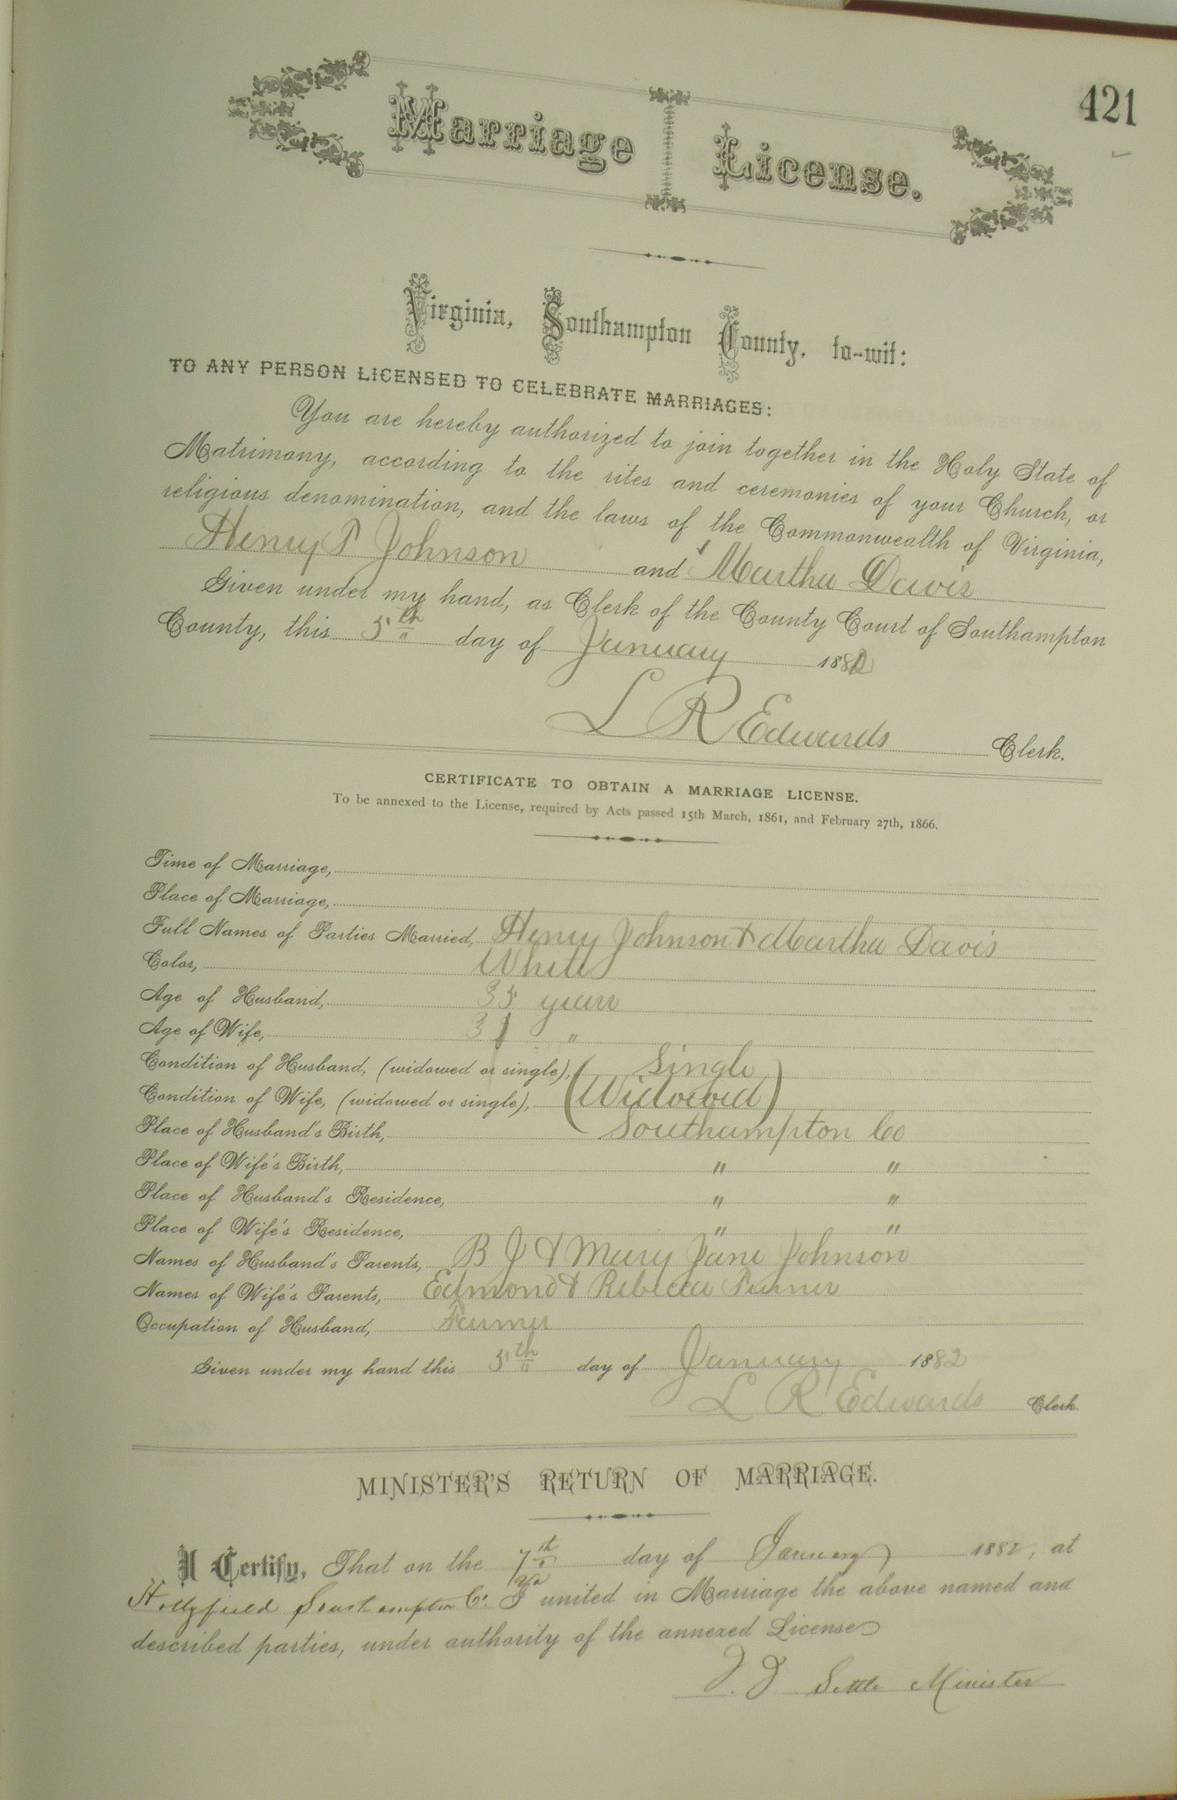 421
Marriage License.
Virginia, Southampton County, to-wit:
TO ANY PERSON LICENSED TO CELEBRATE MARRIAGES:
You are hereby authorized to join together in the Holy State of
Matrimony, according to the rites and ceremonies of your Church, or
religious denomination, and the laws of the Commonwealth of Virginia,
Henry P Johnson and Martha Davis
Given under my hand, as Clerk of the County Court of Southampton
County, this 5th day of January 1882
L R Edwards Clerk.
CERTIFICATE TO OBTAIN A MARRIAGE LICENSE.
To be annexed to the License, required by Acts passed 15th March, 1861, and February 27th, 1866.
Time of Marriage,
Place of Marriage,
Full Names of Parties Married, Henry Johnson & Martha Davis
Color, White
Age of Husband, 35 years
Age of Wife, 31 "
Condition of Husband, (widowed or single), Single
Condition of Wife, (widowed or single), (Widowed)
Place of Husband's Birth, Southampton Co
Place of Wife's Birth, " "
Place of Husband's Residence, " "
Place of Wife's Residence, " "
Names of Husband's Parents, B J & Mary Jane Johnson
Names of Wife's Parents, Edmond & Rebecca Turner
Occupation of Husband, Farmer
Given under my hand this 5th day of January 1882
L R Edwards Clerk
MINISTER'S RETURN OF MARRIAGE.
I Certify, That on the 7th day of January 1882, at
Hollyfield Southampton Co Va I united in Marriage the above named and
described parties, under authority of the annexed License
Settle Minister